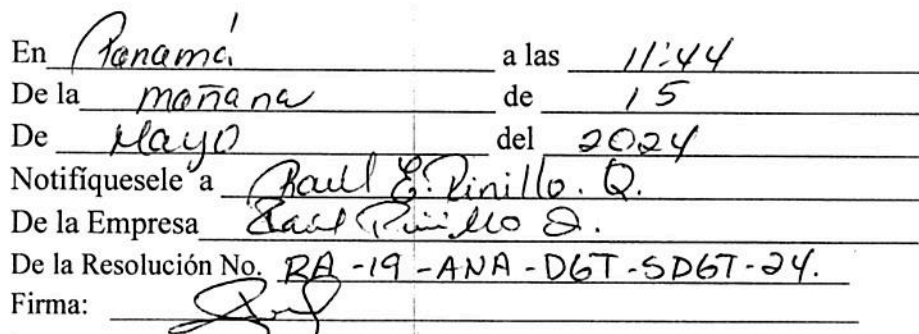 En Panamá a las 11:44
De la mañana de 15
De Mayo del 2024
Notifíquesele a Raul E. Pinillo. Q.
De la Empresa Raul Pinillo Q.
De la Resolución No. RA-19-ANA-DGT-SDGT-24.
Firma: